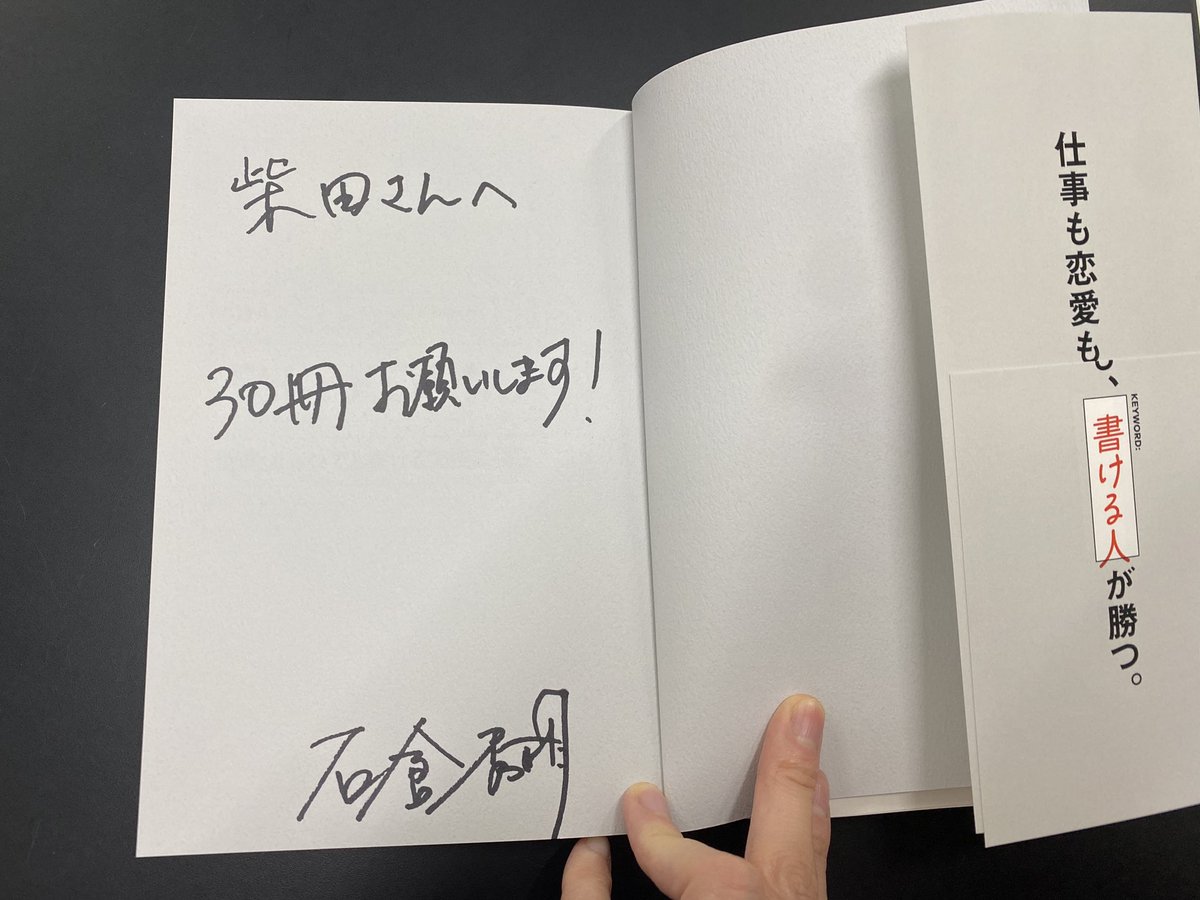 柴田さんへ
30冊お願いします!
石倉秀明
仕事も恋愛も、
KEYWORD:
書ける人
が勝つ。